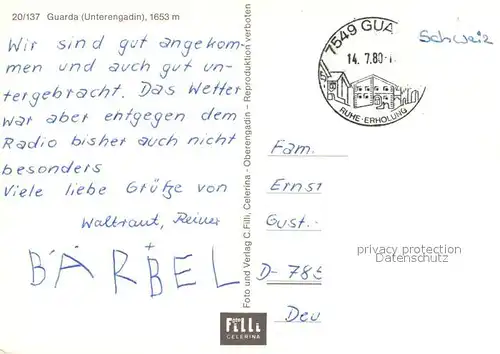 20/137 Guarda (Unterengadin), 1653 m
Wir sind gut angekom-
men und auch gut un-
tergebracht. Das Wetter
war aber entgegen dem
Radio bisher auch nicht
besonders
Viele liebe Grütze von
Waltraut, Reiner
+
BÄRBEL
Foto und Verlag C. Filli, Celerina - Oberengadin - Reproduktion verboten
Foto
Filli
CELERINA
7549 GUA
14.7.80
RUHE·ERHOLUNG
Schweiz
Fam.
Ernst
Gust.-
D-785
Deu
privacy protection
Datenschutz